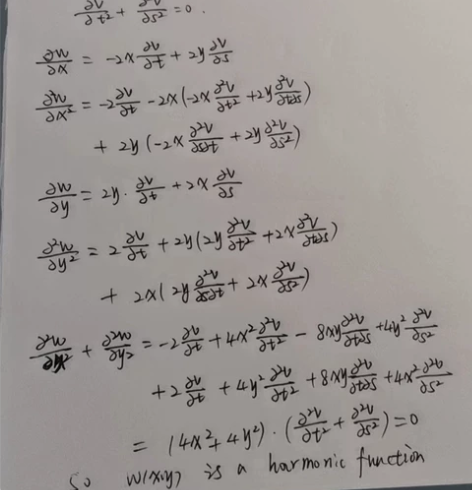 ∂²v/∂t² + ∂²v/∂s² = 0.
∂w/∂x = -2x ∂v/∂t + 2y ∂v/∂s
∂²w/∂x² = -2 ∂v/∂t - 2x(-2x ∂²v/∂t² + 2y ∂²v/∂t∂s)
+ 2y(-2x ∂²v/∂s∂t + 2y ∂²v/∂s²)
∂w/∂y = 2y · ∂v/∂t + 2x ∂v/∂s
∂²w/∂y² = 2 ∂v/∂t + 2y(2y ∂²v/∂t² + 2x ∂²v/∂t∂s)
+ 2x(2y ∂²v/∂s∂t + 2x ∂²v/∂s²)
∂²w/∂x² + ∂²w/∂y² = -2 ∂v/∂t + 4x² ∂²v/∂t² - 8xy ∂²v/∂t∂s + 4y² ∂²v/∂s²
+ 2 ∂v/∂t + 4y² ∂²v/∂t² + 8xy ∂²v/∂t∂s + 4x² ∂²v/∂s²
= (4x² + 4y²) · (∂²v/∂t² + ∂²v/∂s²) = 0
So w(x,y) is a harmonic function